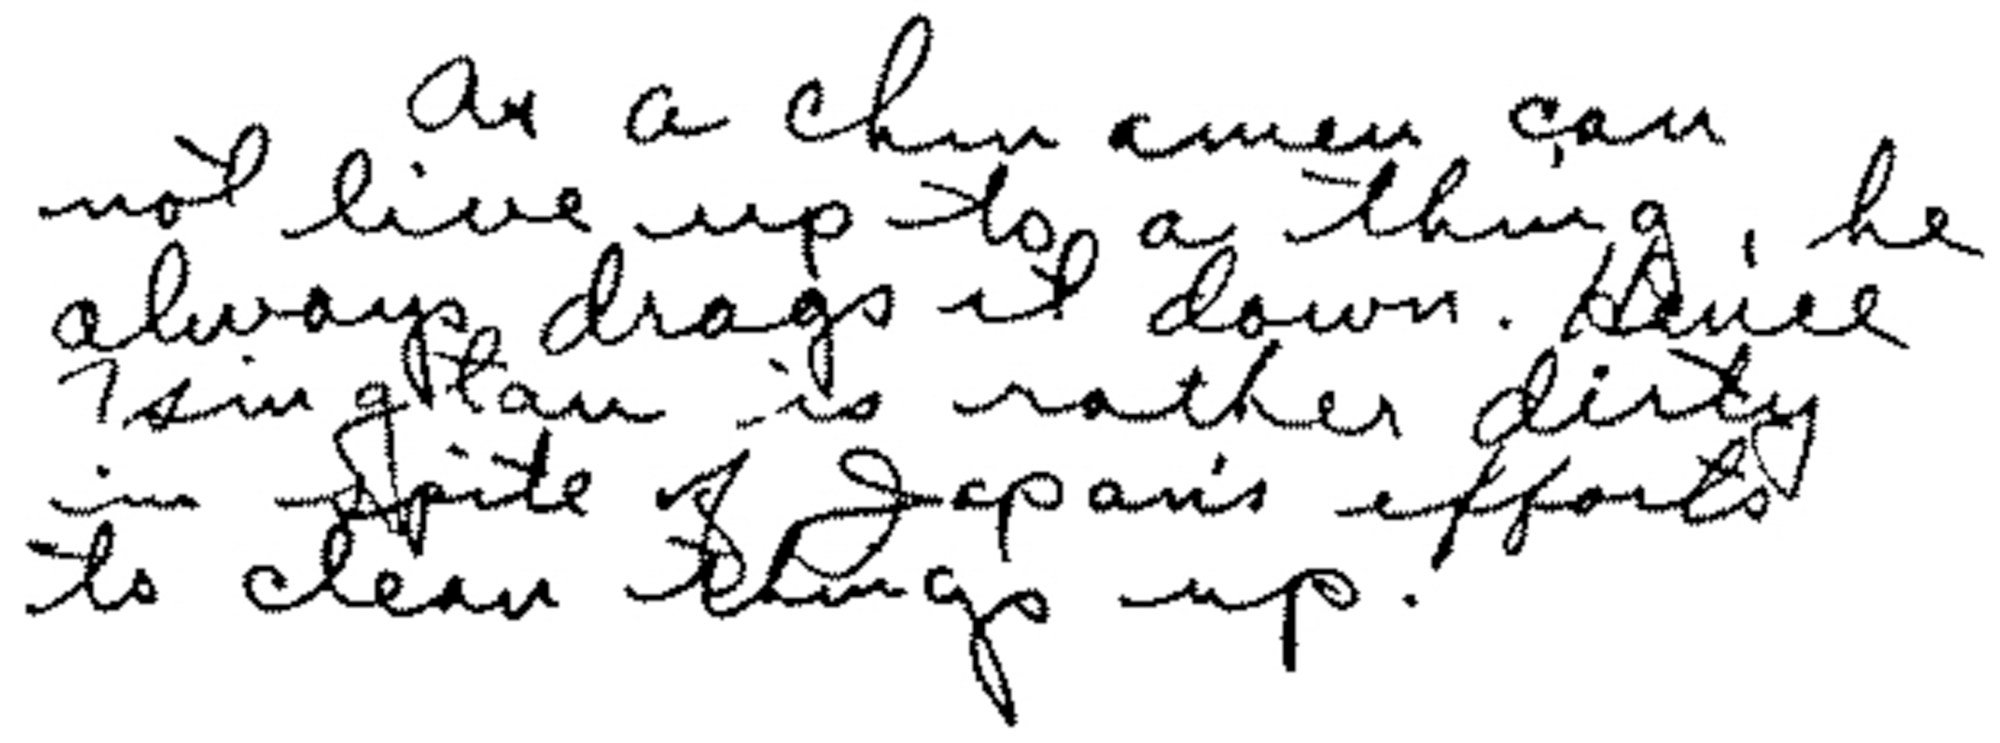 As a chinamen can
not live up to a thing, he
always drags it down. Hence
Tsingtau is rather dirty
in spite of Japan's efforts
to clean things up.